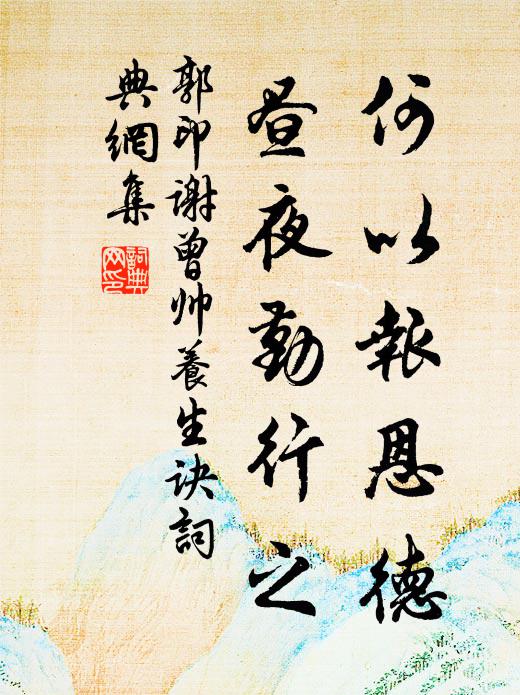 何以報恩德
晝夜勤行之
郭印謝曾帅養生诀詞
典網集
詞典
网印